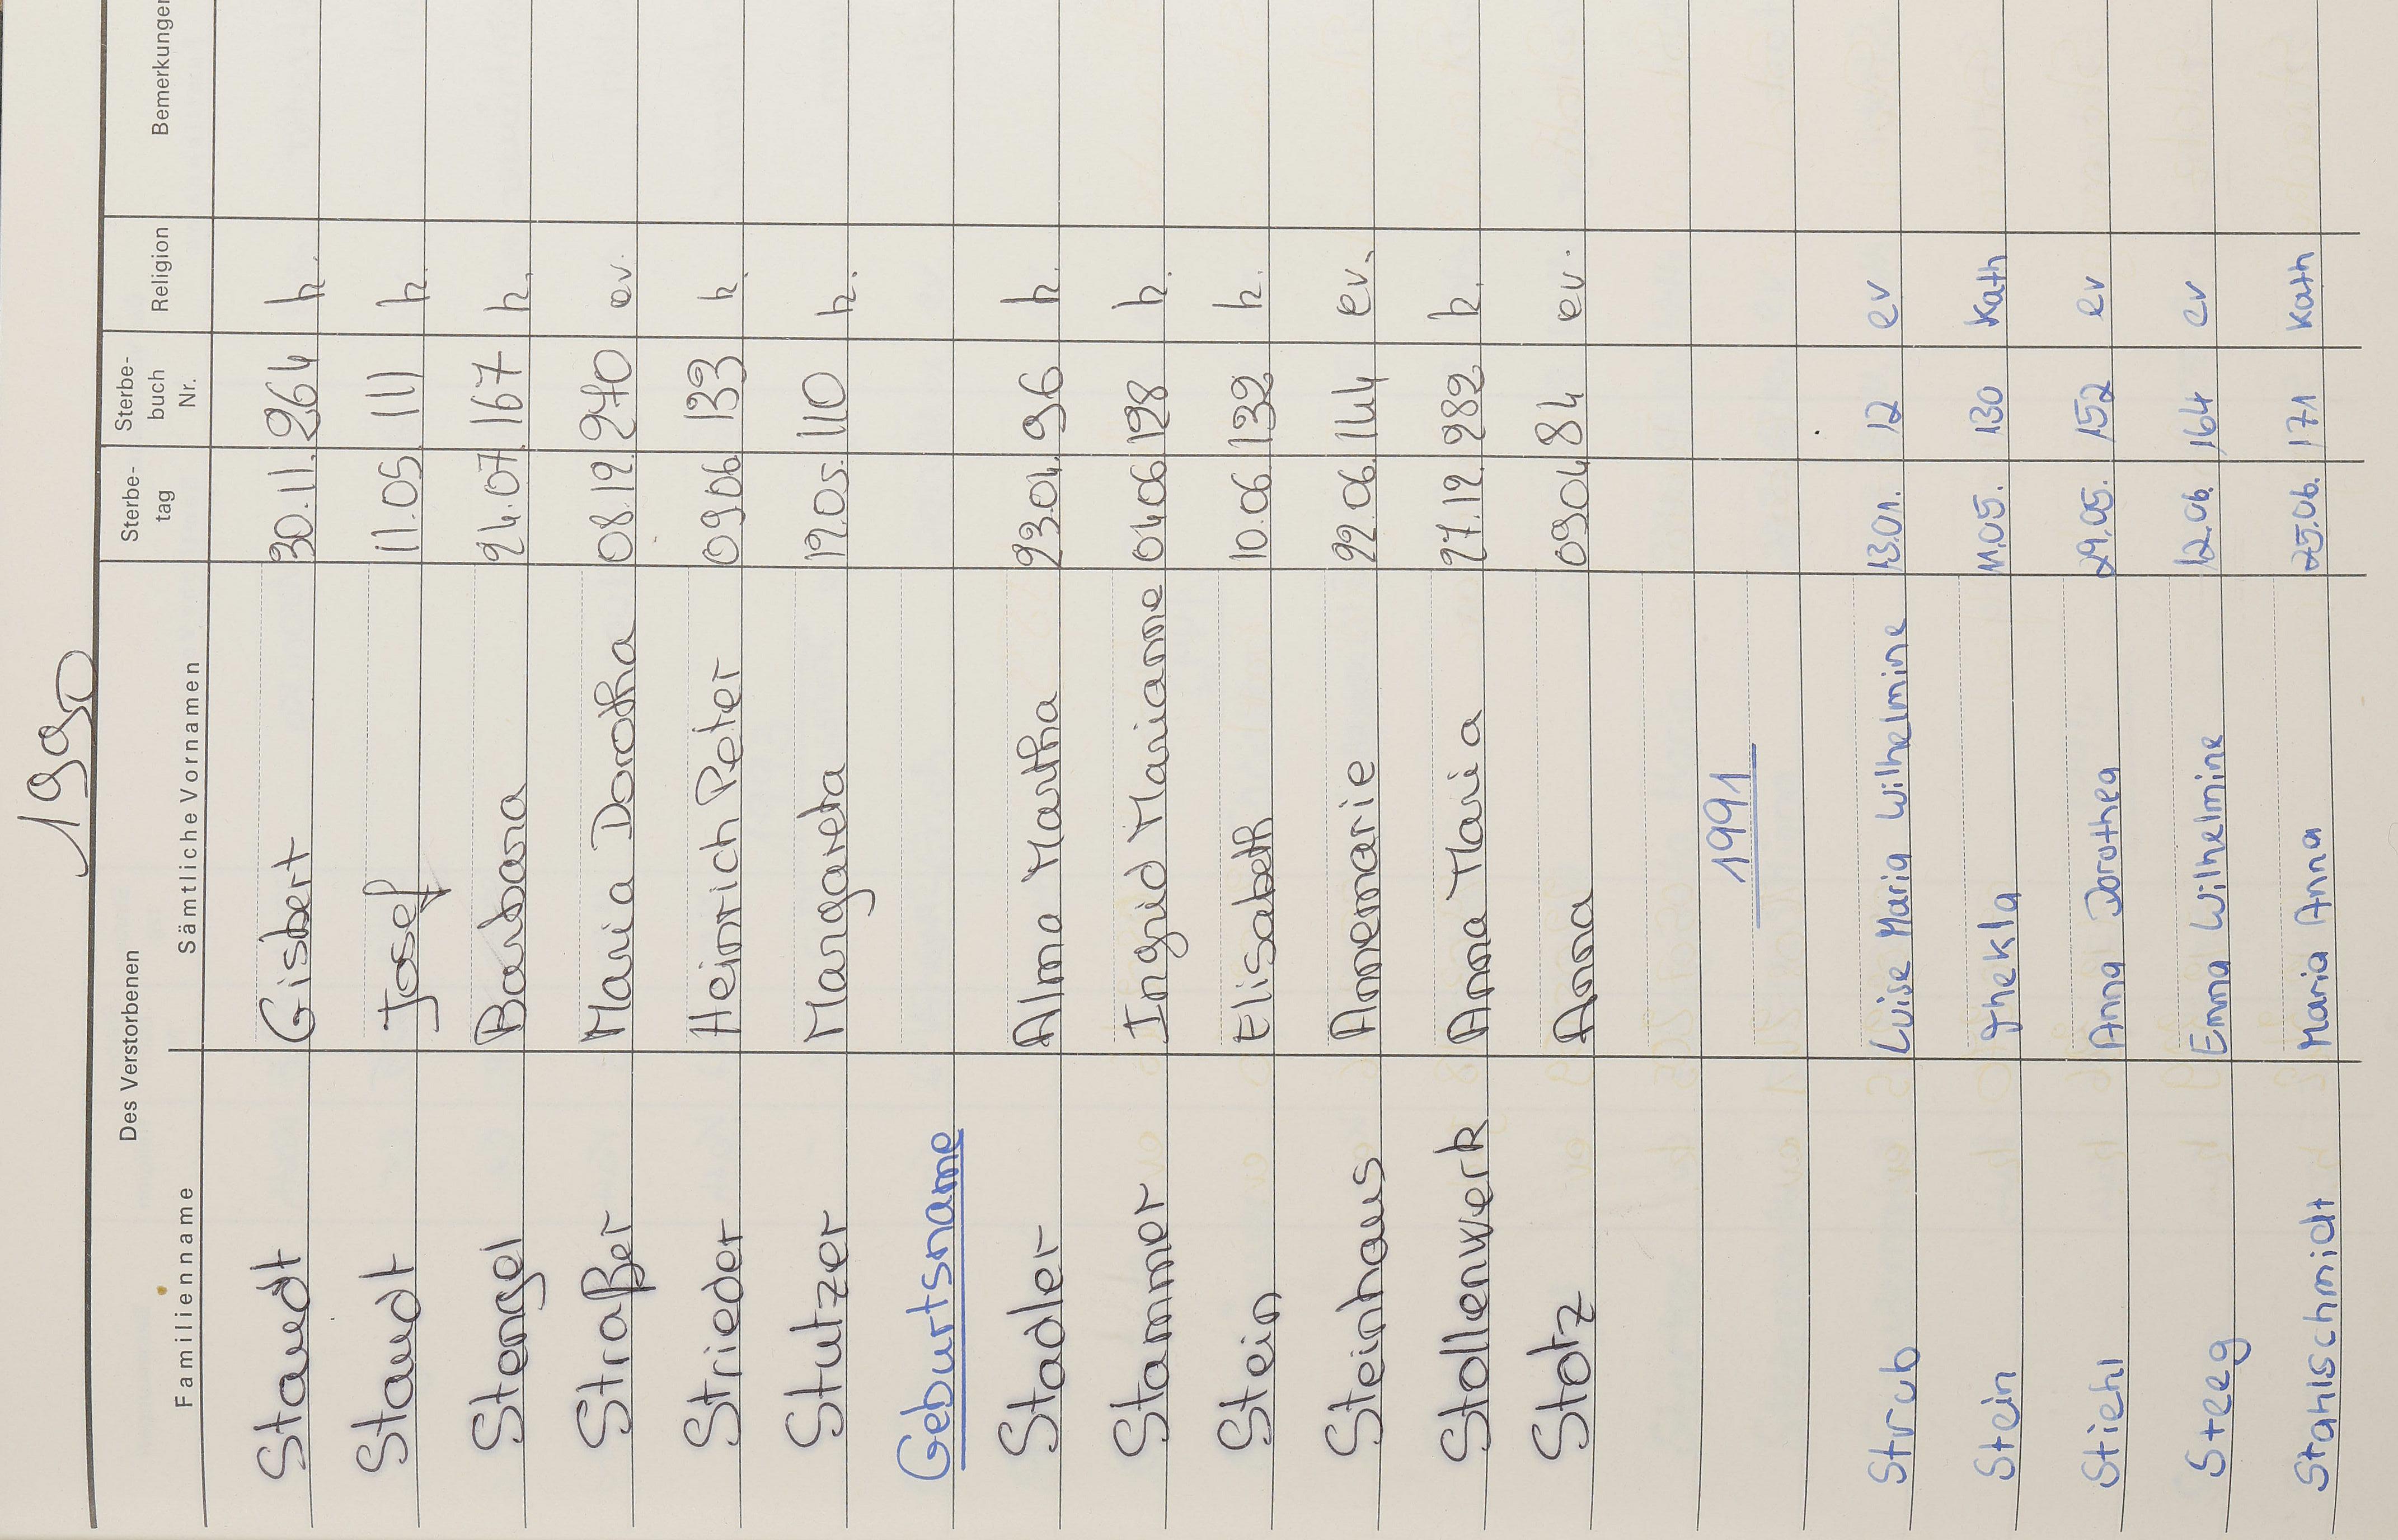 1990
Des Verstorbenen
Familienname Sämtliche Vornamen Sterbe-tag Sterbe-buch Nr. Religion Bemerkungen
Staudt Gisbert 30.11. 264 k.
Staudt Josef 11.05. 111 k.
Stengel Barbara 24.07. 167 k.
Straßer Maria Dorotha 08.12. 270 ev.
Strieder Heinrich Peter 09.06. 133 k.
Stutzer Margareta 12.05. 110 k.
Geburtsname
Stadler Alma Martha 23.04. 96 k.
Stammer Ingrid Marianne 04.06 128 k.
Stein Elisabeth 10.06. 132 k.
Steinhaus Annemarie 22.06. 144 ev.
Stollenwerk Anna Maria 27.12. 282 k.
Stotz Anna 09.04 84 ev.
1991
Strub Luise Maria Wilhelmine 13.01. 12 ev
Stein Thekla 11.05. 130 kath
Stiehl Anna Dorothea 29.05. 152 ev
Steeg Emma Wilhelmine 12.06. 164 ev
Stahlschmidt Maria Anna 25.06. 171 kath